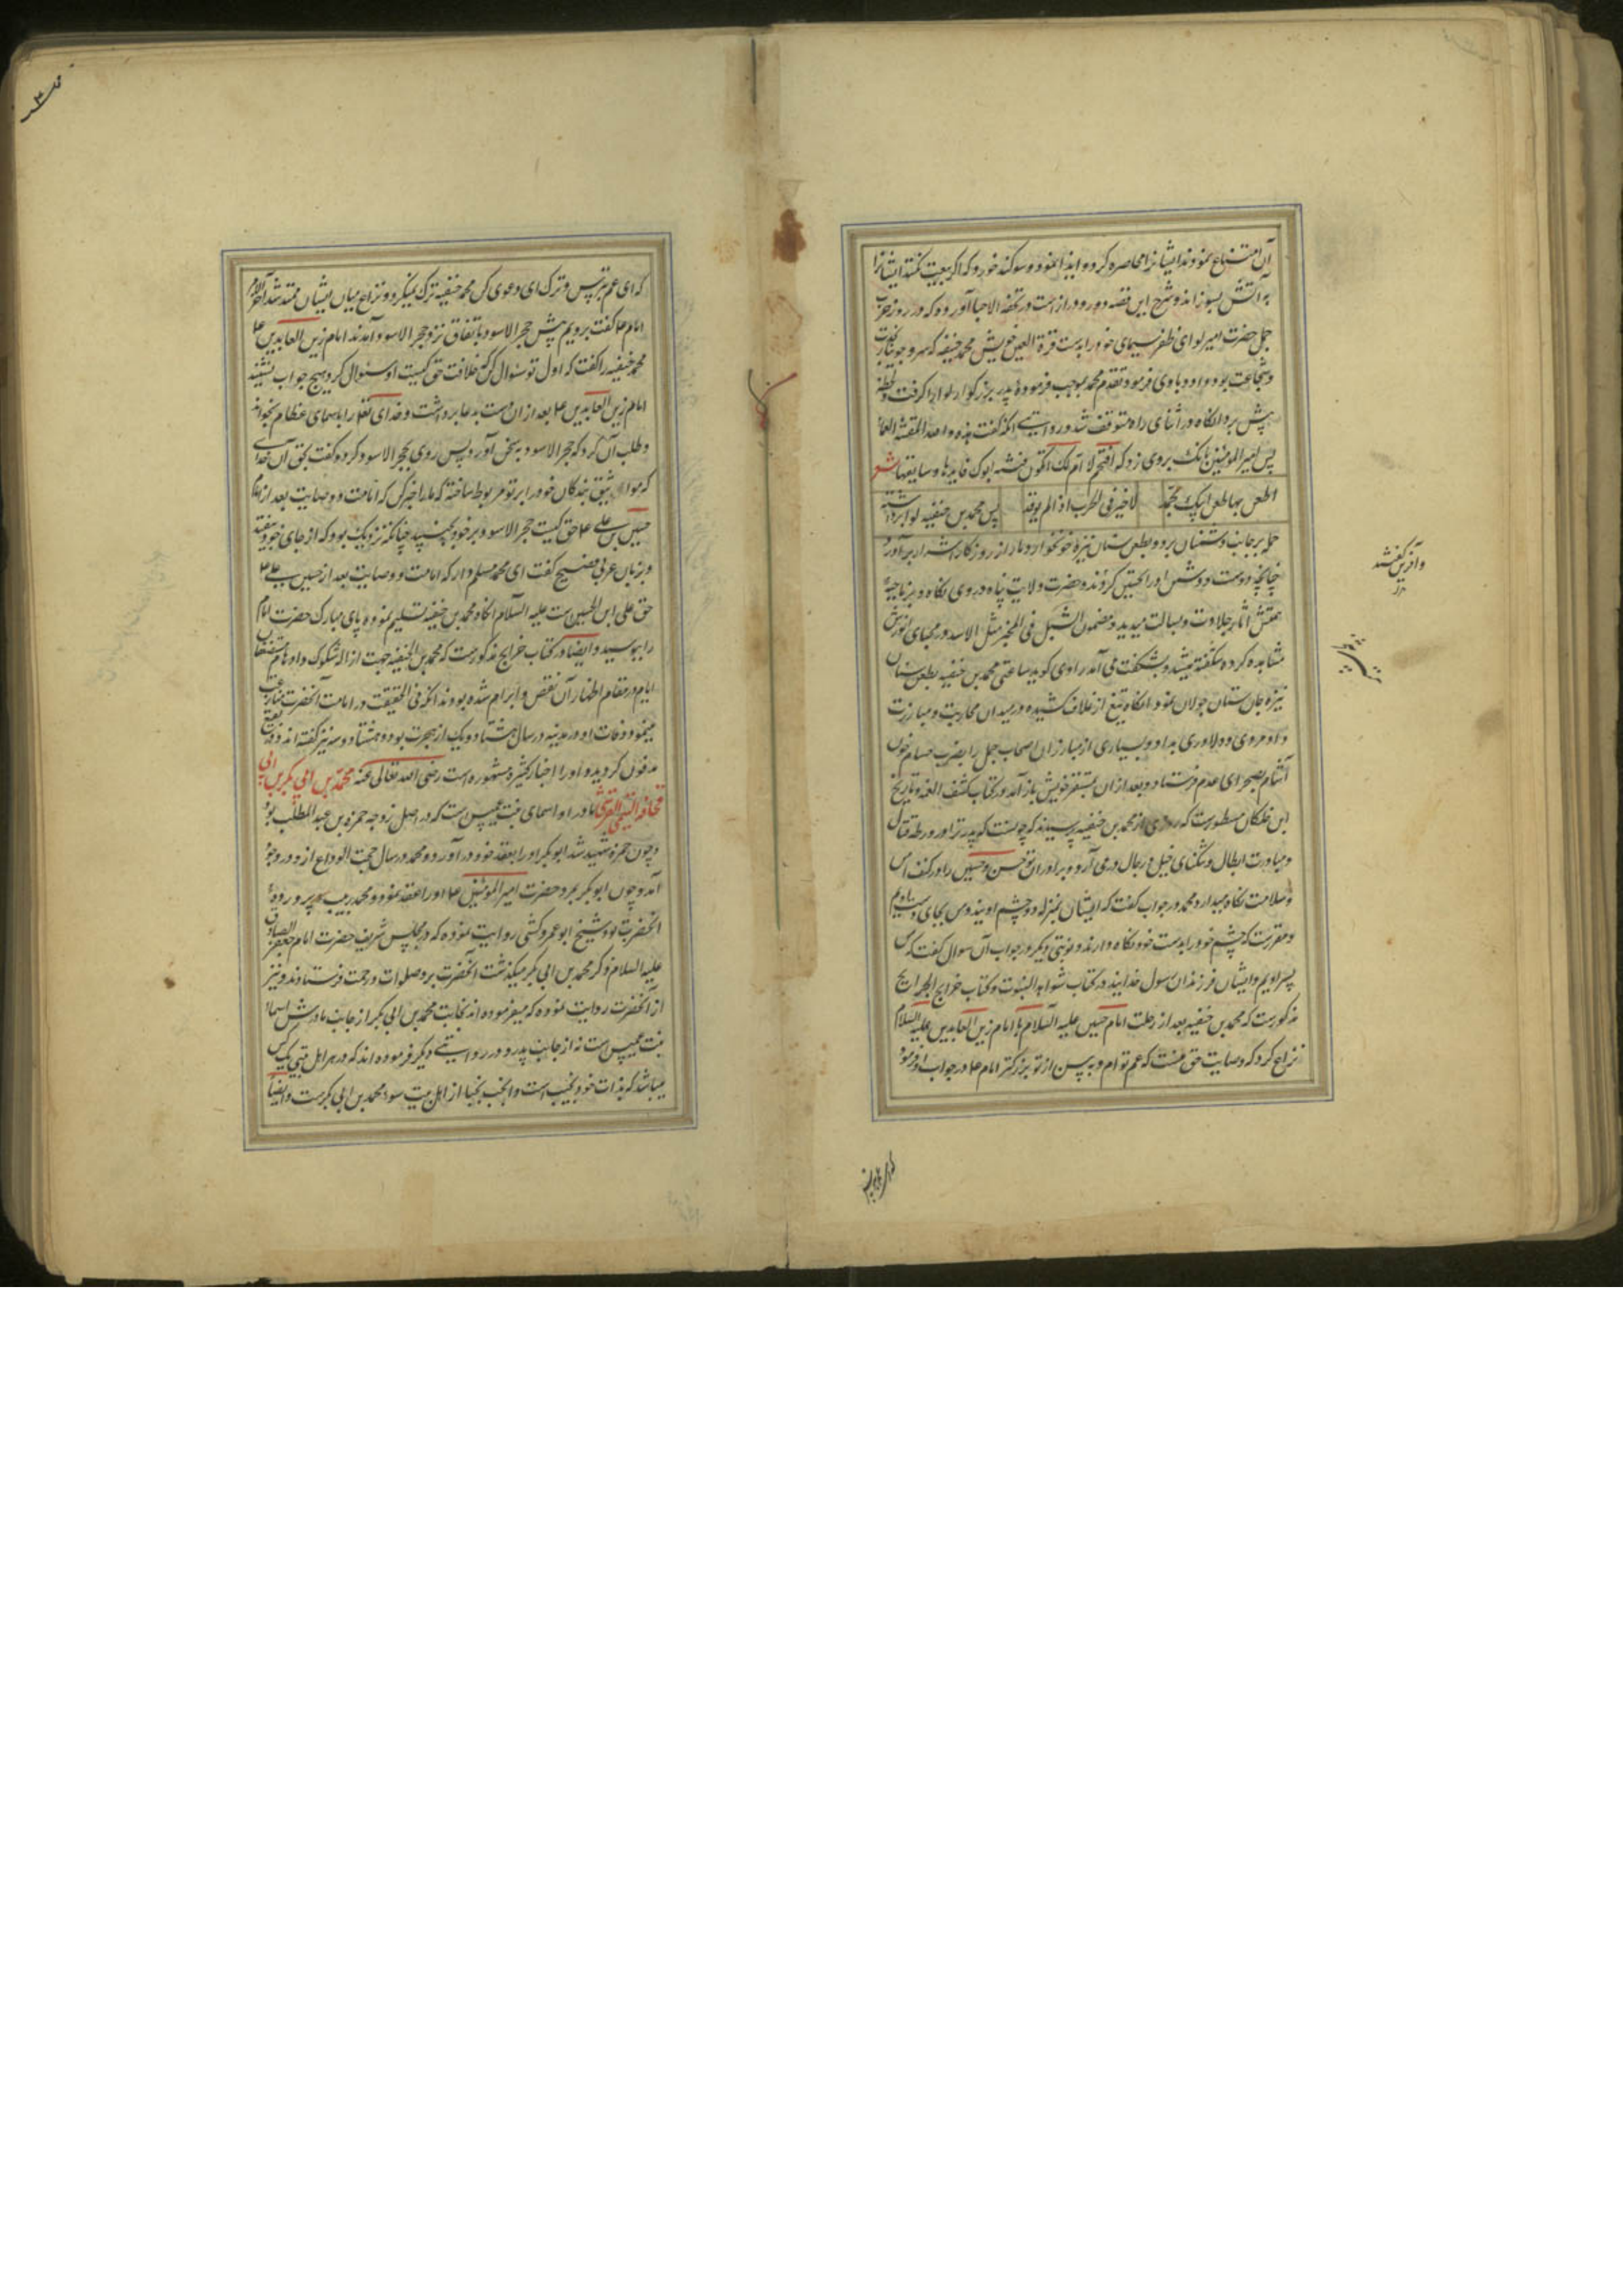 آن امتناع نمودند ایشانرا محاصره کرد و ایذا نمود و سوکند خورد که اکر بیعت نکنند ایشانرا
به آتش بسوزاند و شرح این قصه دور و دراز است در تحفه الاحبا آورده که در روز حرب
جمل حضرت امیر لوای ظفر سیمای خود را بدست قرة العین خویش محمد حنیفه که سرو جویبار
و شجاعت بود داد و باوی فرمود تقدم محمد بموجب فرموده پدر بزرکوار لوا را کرفت و لحظه
پیش برد انکاه در اثنای راه متوقف شد و روایتی انکه کفت هذه والله
پس امیر المومنین بانک بروی زد که اقتحم لا ام لک
اطعن بها طعن ابیک تحمد لا خیر فی الحرب اذا لم یوقد پس محمد بن حنفیه لوا برداشته
حمله بر جانب دشمنان برد و بطعن سنان نیزه خونخوار دمار از روزکار اشرار برآورد
چنانچه دوست و دشمن اورا تحسین کردند و حضرت ولایت پناه در وی نکاه
آثار جلادت و بسالت میدید و مضمون الشبل فی المخبر مثل الاسد در
مشاهده کرده شکفته میشد و بشکفت می آمد راوی کوید ساعتی محمد بن حنفیه بطعن سنان
نیزه جان ستان جولان نمود انکاه تیغ از غلاف کشیده در میدان محاربت و مبارزت
داد مردی و دلاوری بداد و بسیاری از مبارزان اصحاب جمل را بضرب حسام خون
آشام بصحرای عدم فرستاد و بعد از ان بمستقر خویش باز آمد و در کتاب کشف الغمه و تاریخ
ابن خلکان مسطورست که روزی از محمد بن حنفیه پرسیدند که چونست که پدر ترا در ورطه قتال
و مبادرت ابطال و تنکنای خیل و رجال در می آرد و برادران تو حسن و حسین را در کنف امن
و سلامت نکاه میدارد محمد در جواب کفت که ایشان بمنزله دو چشم اویند و من بجای دست اویم
و مقررست که چشم خود را بدست خود نکاه دارند و نوبتی دیکر در جواب آن سوال کفت که من
پسر اویم و ایشان فرزندان رسول خدایند و در کتاب شواهد النبوت و کتاب خرایج الجرایح
مذکورست که محمد بن حنیفه بعد از رحلت امام حسین علیه السلام با امام زین العابدین علیه السلام
نزاع کرد که وصایت حق منست که عم توام و به سن از تو بزرکتر امام ع در جواب او فرمود
و آفرین کفتند
که ای عم بترس و ترک این دعوی کن محمد حنفیه ترک نمیکرد و نزاع میان ایشان ممتد شد آخر الامر
امام ع کفت برویم پیش حجر الاسود باتفاق نزد حجر الاسود آمدند امام زین العابدین ع
محمد حنفیه را کفت که اول تو سئوال کن که خلافت حق کیست او سئوال کرد و هیچ جواب نشنید
امام زین العابدین ع بعد از ان دست بدعا برداشت و خدای تعالی را باسمای عظام بخواند
و طلب آن کرد که حجر الاسود بسخن آورد پس روی بحجر الاسود کرده کفت بحق آن خدائی
که مواثیق بندکان خود را بر تو مربوط ساخته که ما را خبر کن که امامت و وصایت بعد از امام
حسین بن علی ع حق کیست حجر الاسود بر خود بجنبید چنانکه نزدیک بود که از جای خود بیفتد
و بزبان عربی فصیح کفت ای محمد مسلم دار که امامت و وصایت بعد از حسین بن علی ع
حق علی ابن الحسین ست علیه السلام انکاه محمد بن حنفیه تسلیم نموده پای مبارک حضرت امام
را ببوسید و ایضا در کتاب خرایج مذکورست که محمد بن الحنفیه جهت ازاله شکوک و اوهام مستضعفان
ایام در مقام اظهار آن نقض و ابرام شده بود نه انکه فی الحقیقت در امامت آنحضرت منازعت
مینمود و وفات او در مدینه در سال هشتاد و یک از هجرت بود و هشتاد و سه نیز کفته اند و در بقیع
مدفون کردید و اورا اخبار کثیره مشهوره است رضی الله تعالی عنه محمد بن ابی بکر بن ابی
قحافه التیمی القرشی مادر او اسمای بنت عمیس ست که در اصل زوجه حمزه بن عبد المطلب بود
و چون حمزه شهید شد ابوبکر اورا بعقد خود در آورد و محمد در سال حجت الوداع از و در وجود
آمد و چون ابوبکر بمرد حضرت امیر المومنین ع اورا عقد نمود و محمد ربیب و پرورده
آنحضرت بود و شیخ ابو عمرو کشی روایت نموده که در مجلس شریف حضرت امام جعفر الصادق
علیه السلام ذکر محمد بن ابی بکر میکذشت آنحضرت برو صلوات و رحمت فرستادند و نیز
از آنحضرت روایت نموده که میفرموده اند نجابت محمد بن ابی بکر از جانب مادرش اسما
بنت عمیس ست نه از جانب پدر و در روایتی دیکر فرموده اند که در هر اهل بیتی یک کس
میباشد که بذات خود نجیب است و انجب نجبا از اهل بیت سوء محمد بن ابی بکرست و ایضا